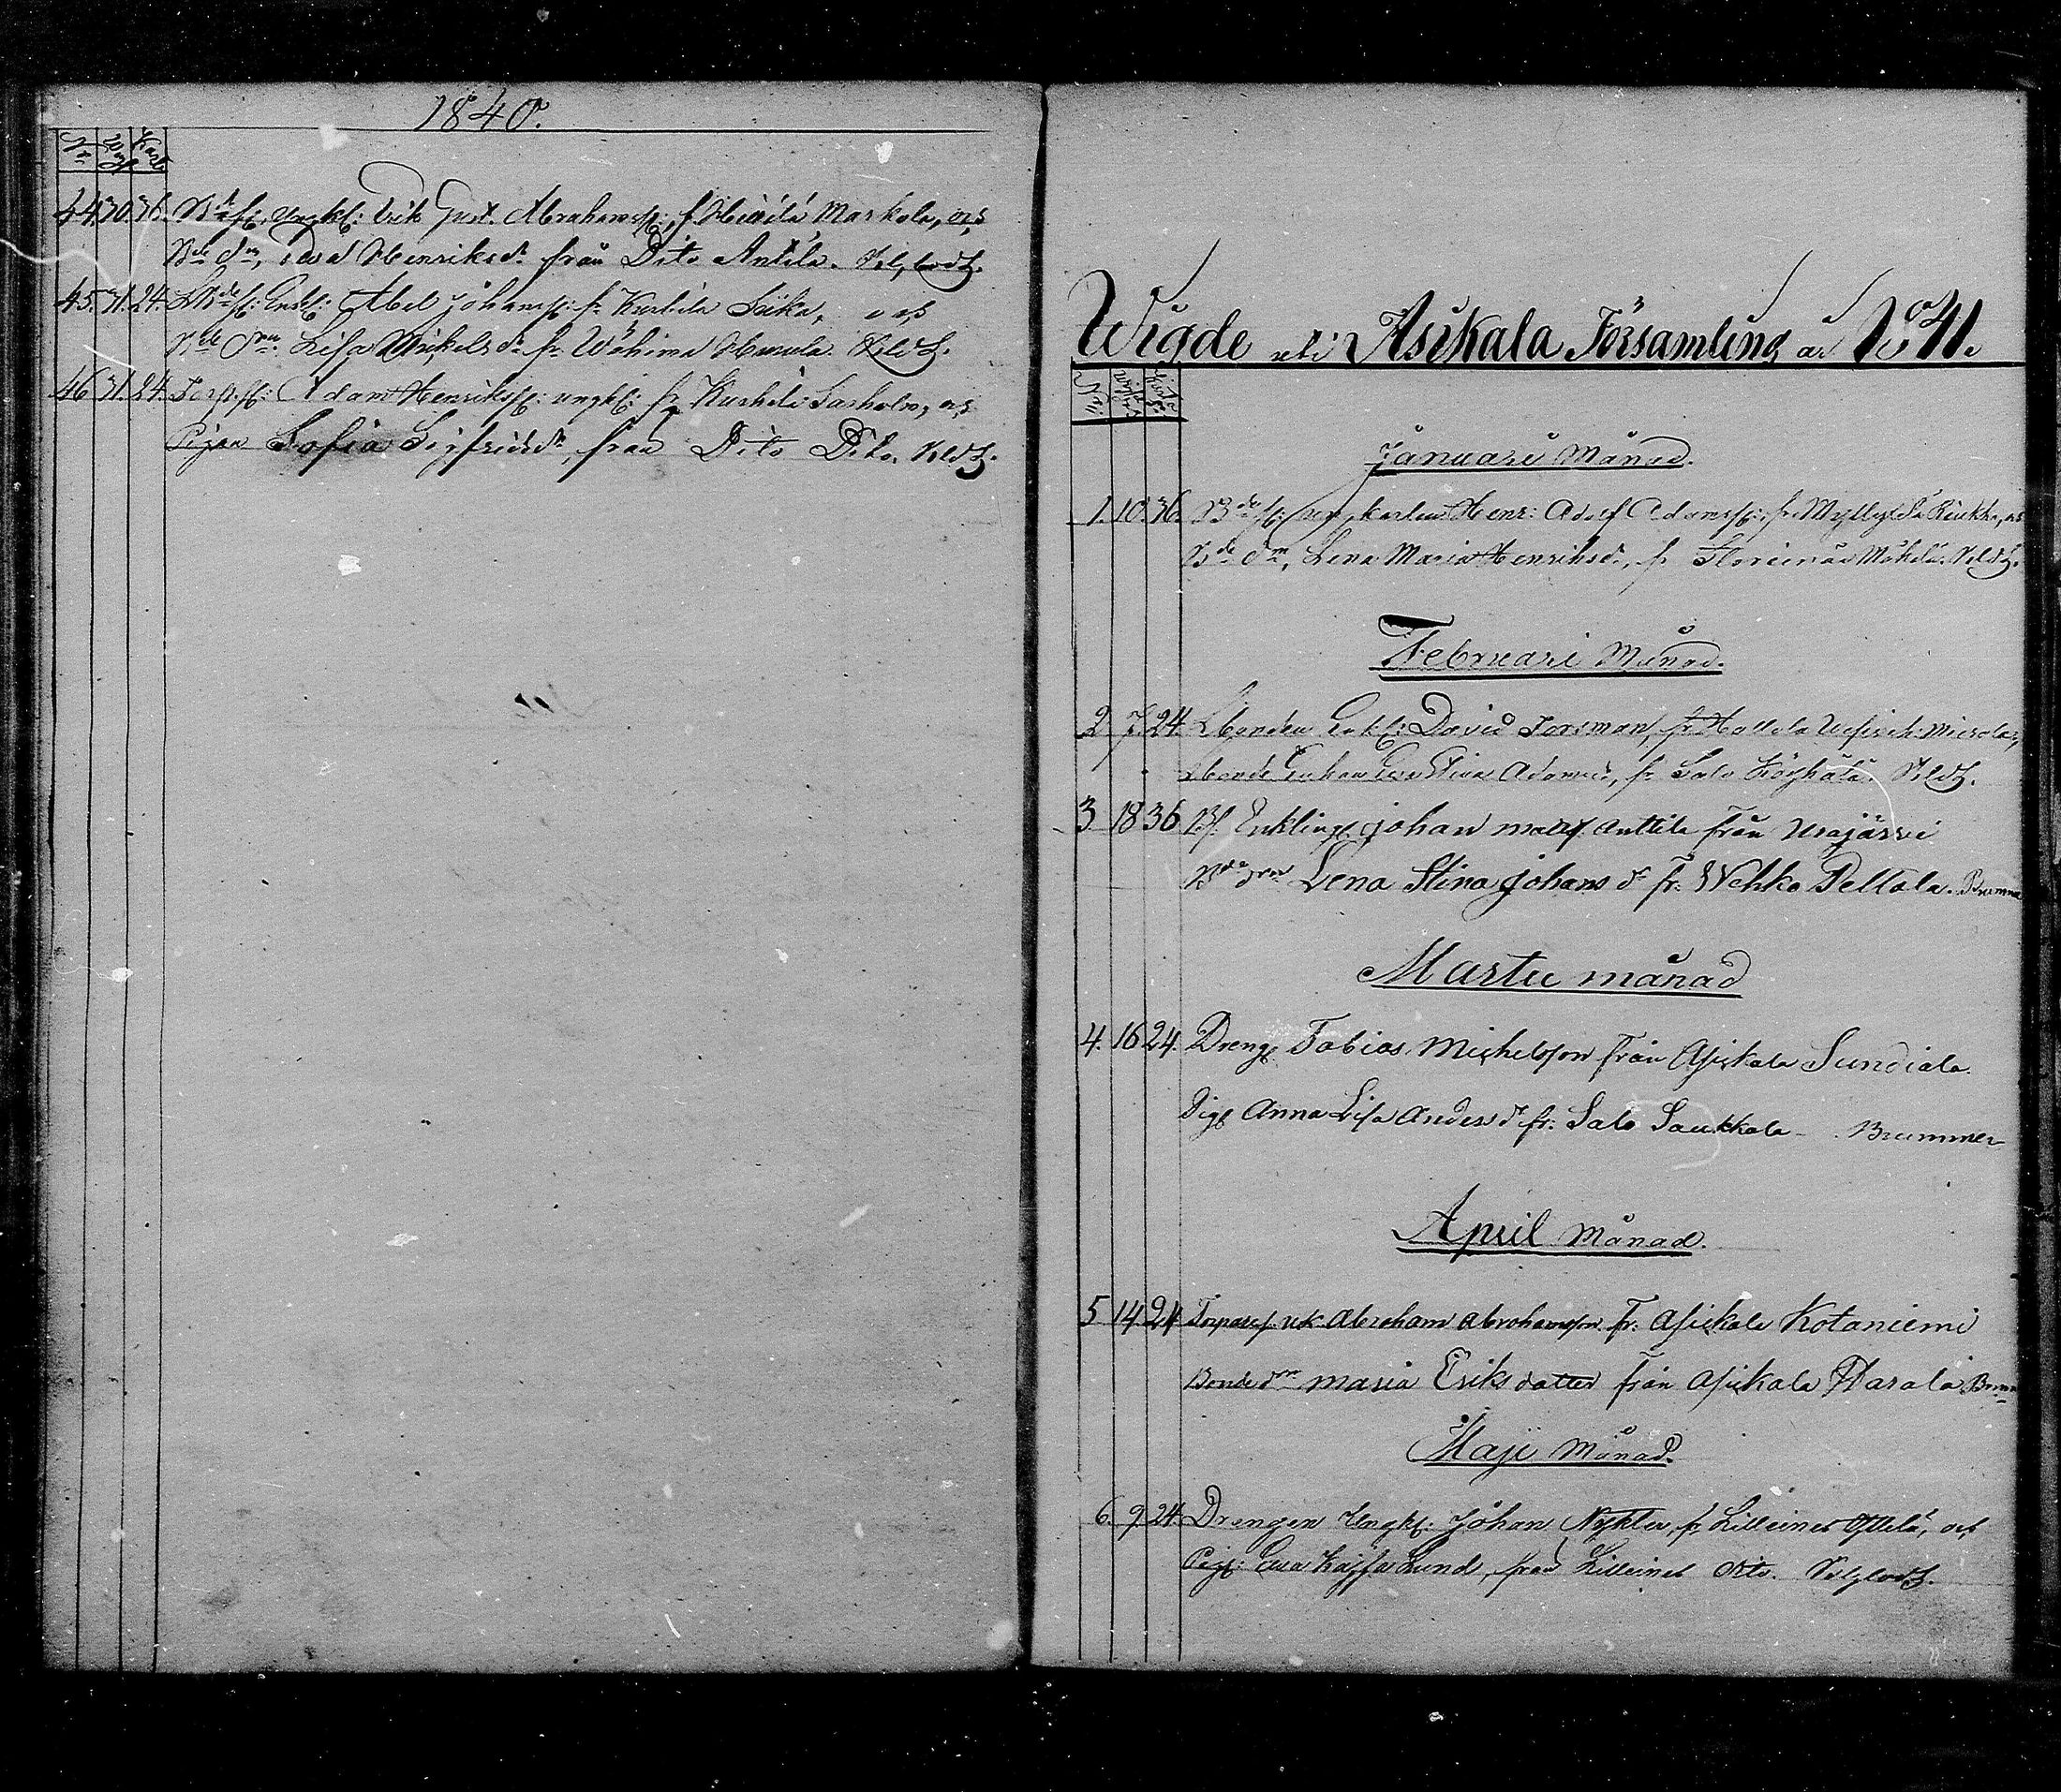 1840.
No Wigs Karta
44. 30. 36. Bdes: ungk: Erik Gust. Abrahamss: f. Heinilä Markola, och
Bde dr, Eva Henriksdr från Dito Antila.
45. 31. 24. Enkl: Abel Johanss: fr Kurhila Siika, och
Bde dr. Lisa Mickelsdr fr Wähimä Hannula.
46. 31. 24. Torp. s: Adam Henrikss: ungk: fr Kurhila Sarholm, och
Pigan Sofia Sigfridsdr, från Dito Dito.
Wigde uti Asikala Församling år 1841.
Januari Månad.
1. 10. 36. Bdes: ungkarlen Henr: Adolf Adamss: fr Myllylä Riukka, och
Bde dr, Lena Maria Henriksd., fr Storeinäs Mäkelä.
Februari Månad.
2 7. 24. Bonden Enkl: David Forsman, fr Hollola
Bonde Enkan Eva Stina Adamsd, fr Salo Köyhälä.
3 18 36 Bs. Enkling Johan Matss. Anttila från Urajärvi
Bde dr Lena Stina Johans dr fr. Wehka Pellola.
Martii månad
4. 16 24. Dreng Tobias Michelsson från Asikala Sundiala.
Pig Anna Lisa Anders dr fr. Salo Saukkola - Brummer
April Månad.
5 14. 24 Torpares. uk. Abraham Abrahamsson fr. Asikala Kotaniemi
Bonde dr Maria Eriks datter från Asikala Harala
Maji Månad.
6. 9. 24. Drengen Ungk: Johan Nykter, fr Lilleines Ylilä, och
Pig: Eva Kajsa Lund, från Lilleines dito.